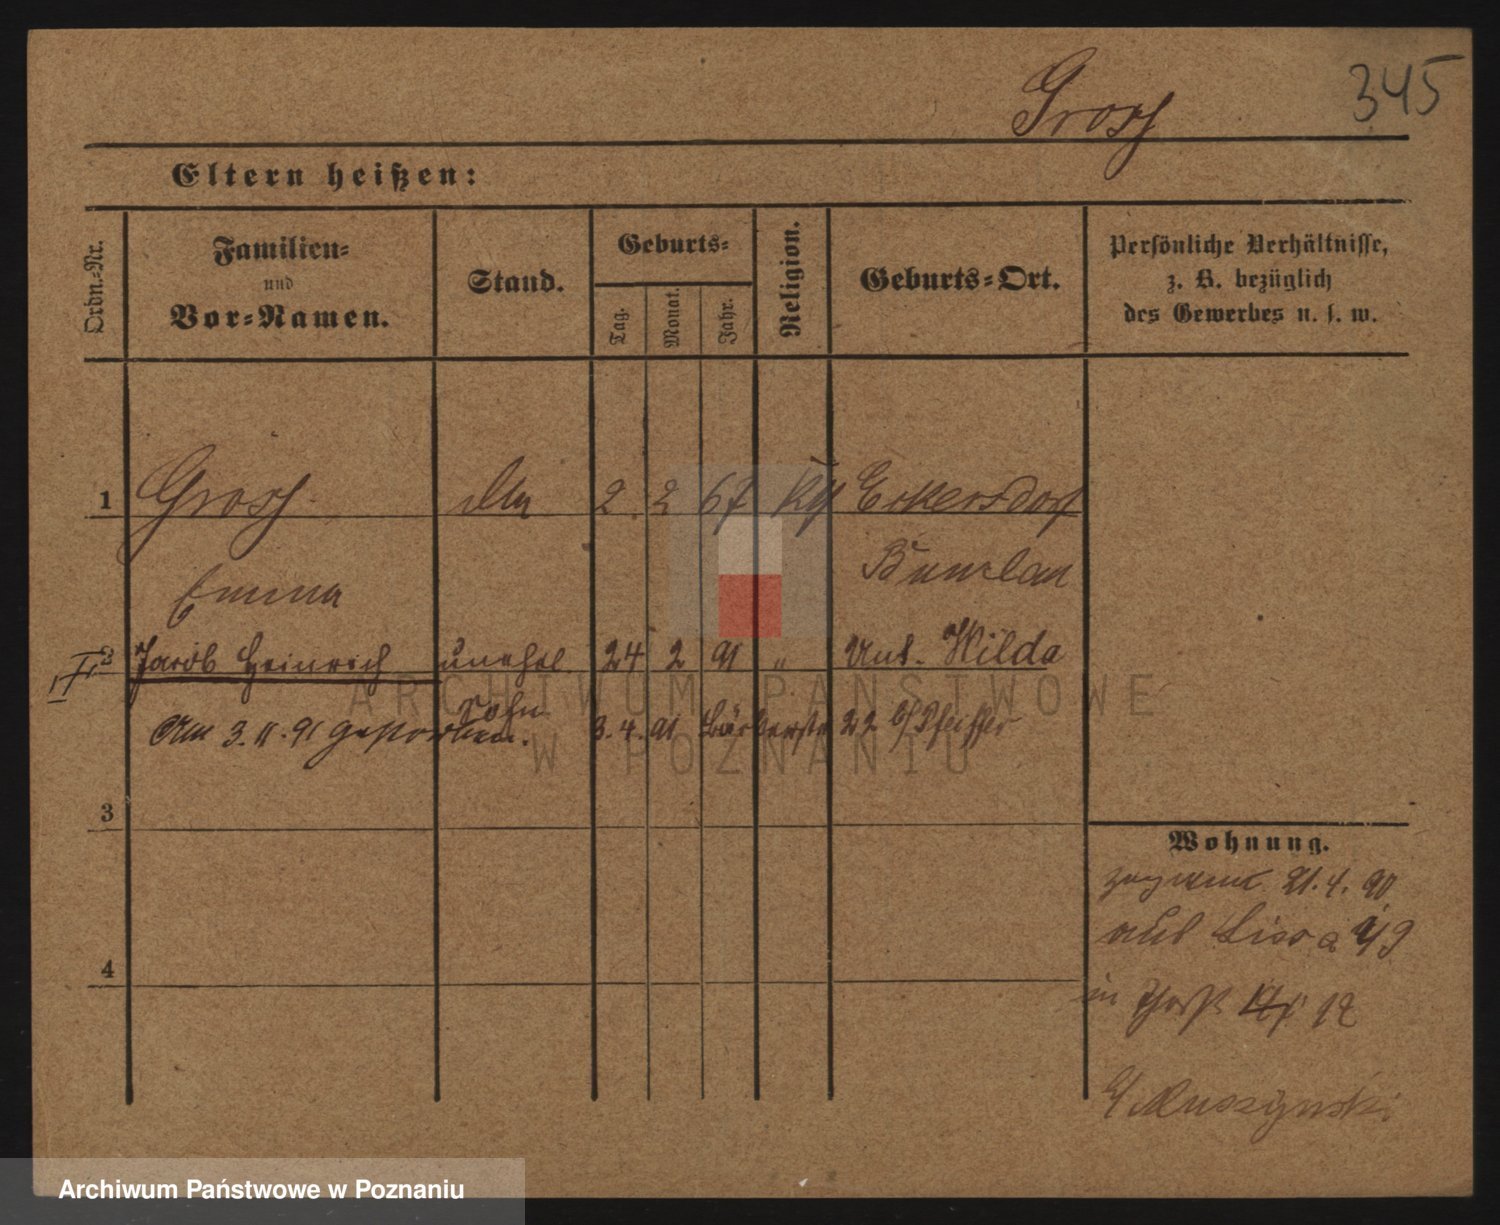 345
Gross
Eltern heißen:
Ordn.-Nr.
Familien-
und
Vor-Namen.
Stand.
Geburts-
Tag.
Monat.
Jahr.
Religion.
Geburts-Ort.
Persönliche Verhältnisse,
z. B. bezüglich
des Gewerbes u. s. w.
1 Gross 2 2 67 Eckersdorf
Emma Bunzlau
2 Jacob Heinrich unehel. 24 2 91 " Unt. Wilda
Sohn
Am 3. 11. 91 gestorben. 3. 4. 91 22 b/ Pfeiffer
ARCHIWUM PAŃSTWOWE
W POZNANIU
3
Wohnung.
21. 4. 90
aus Lissa
4
in 12
Muszynski
Archiwum Państwowe w Poznaniu